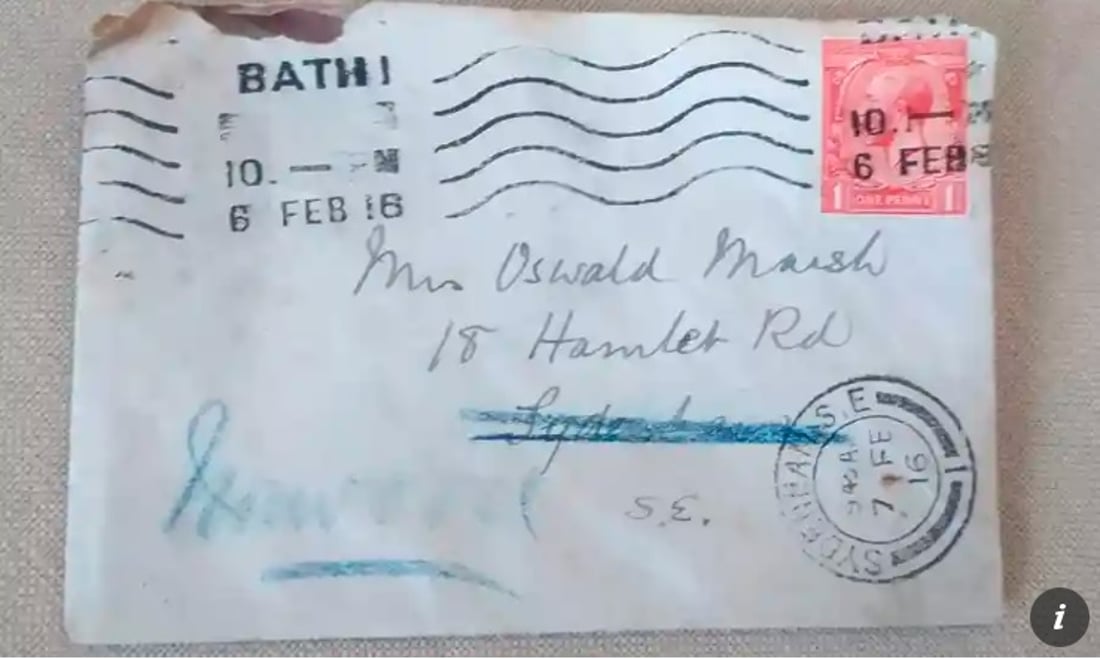 BATH 1
10. —
6 FEB 16
10.
6 FEB
1 ONE PENNY 1
Mrs Oswald Marsh
18 Hamlet Rd
Sydenham
S.E.
SYDENHAM S.E
7 FE
16
i